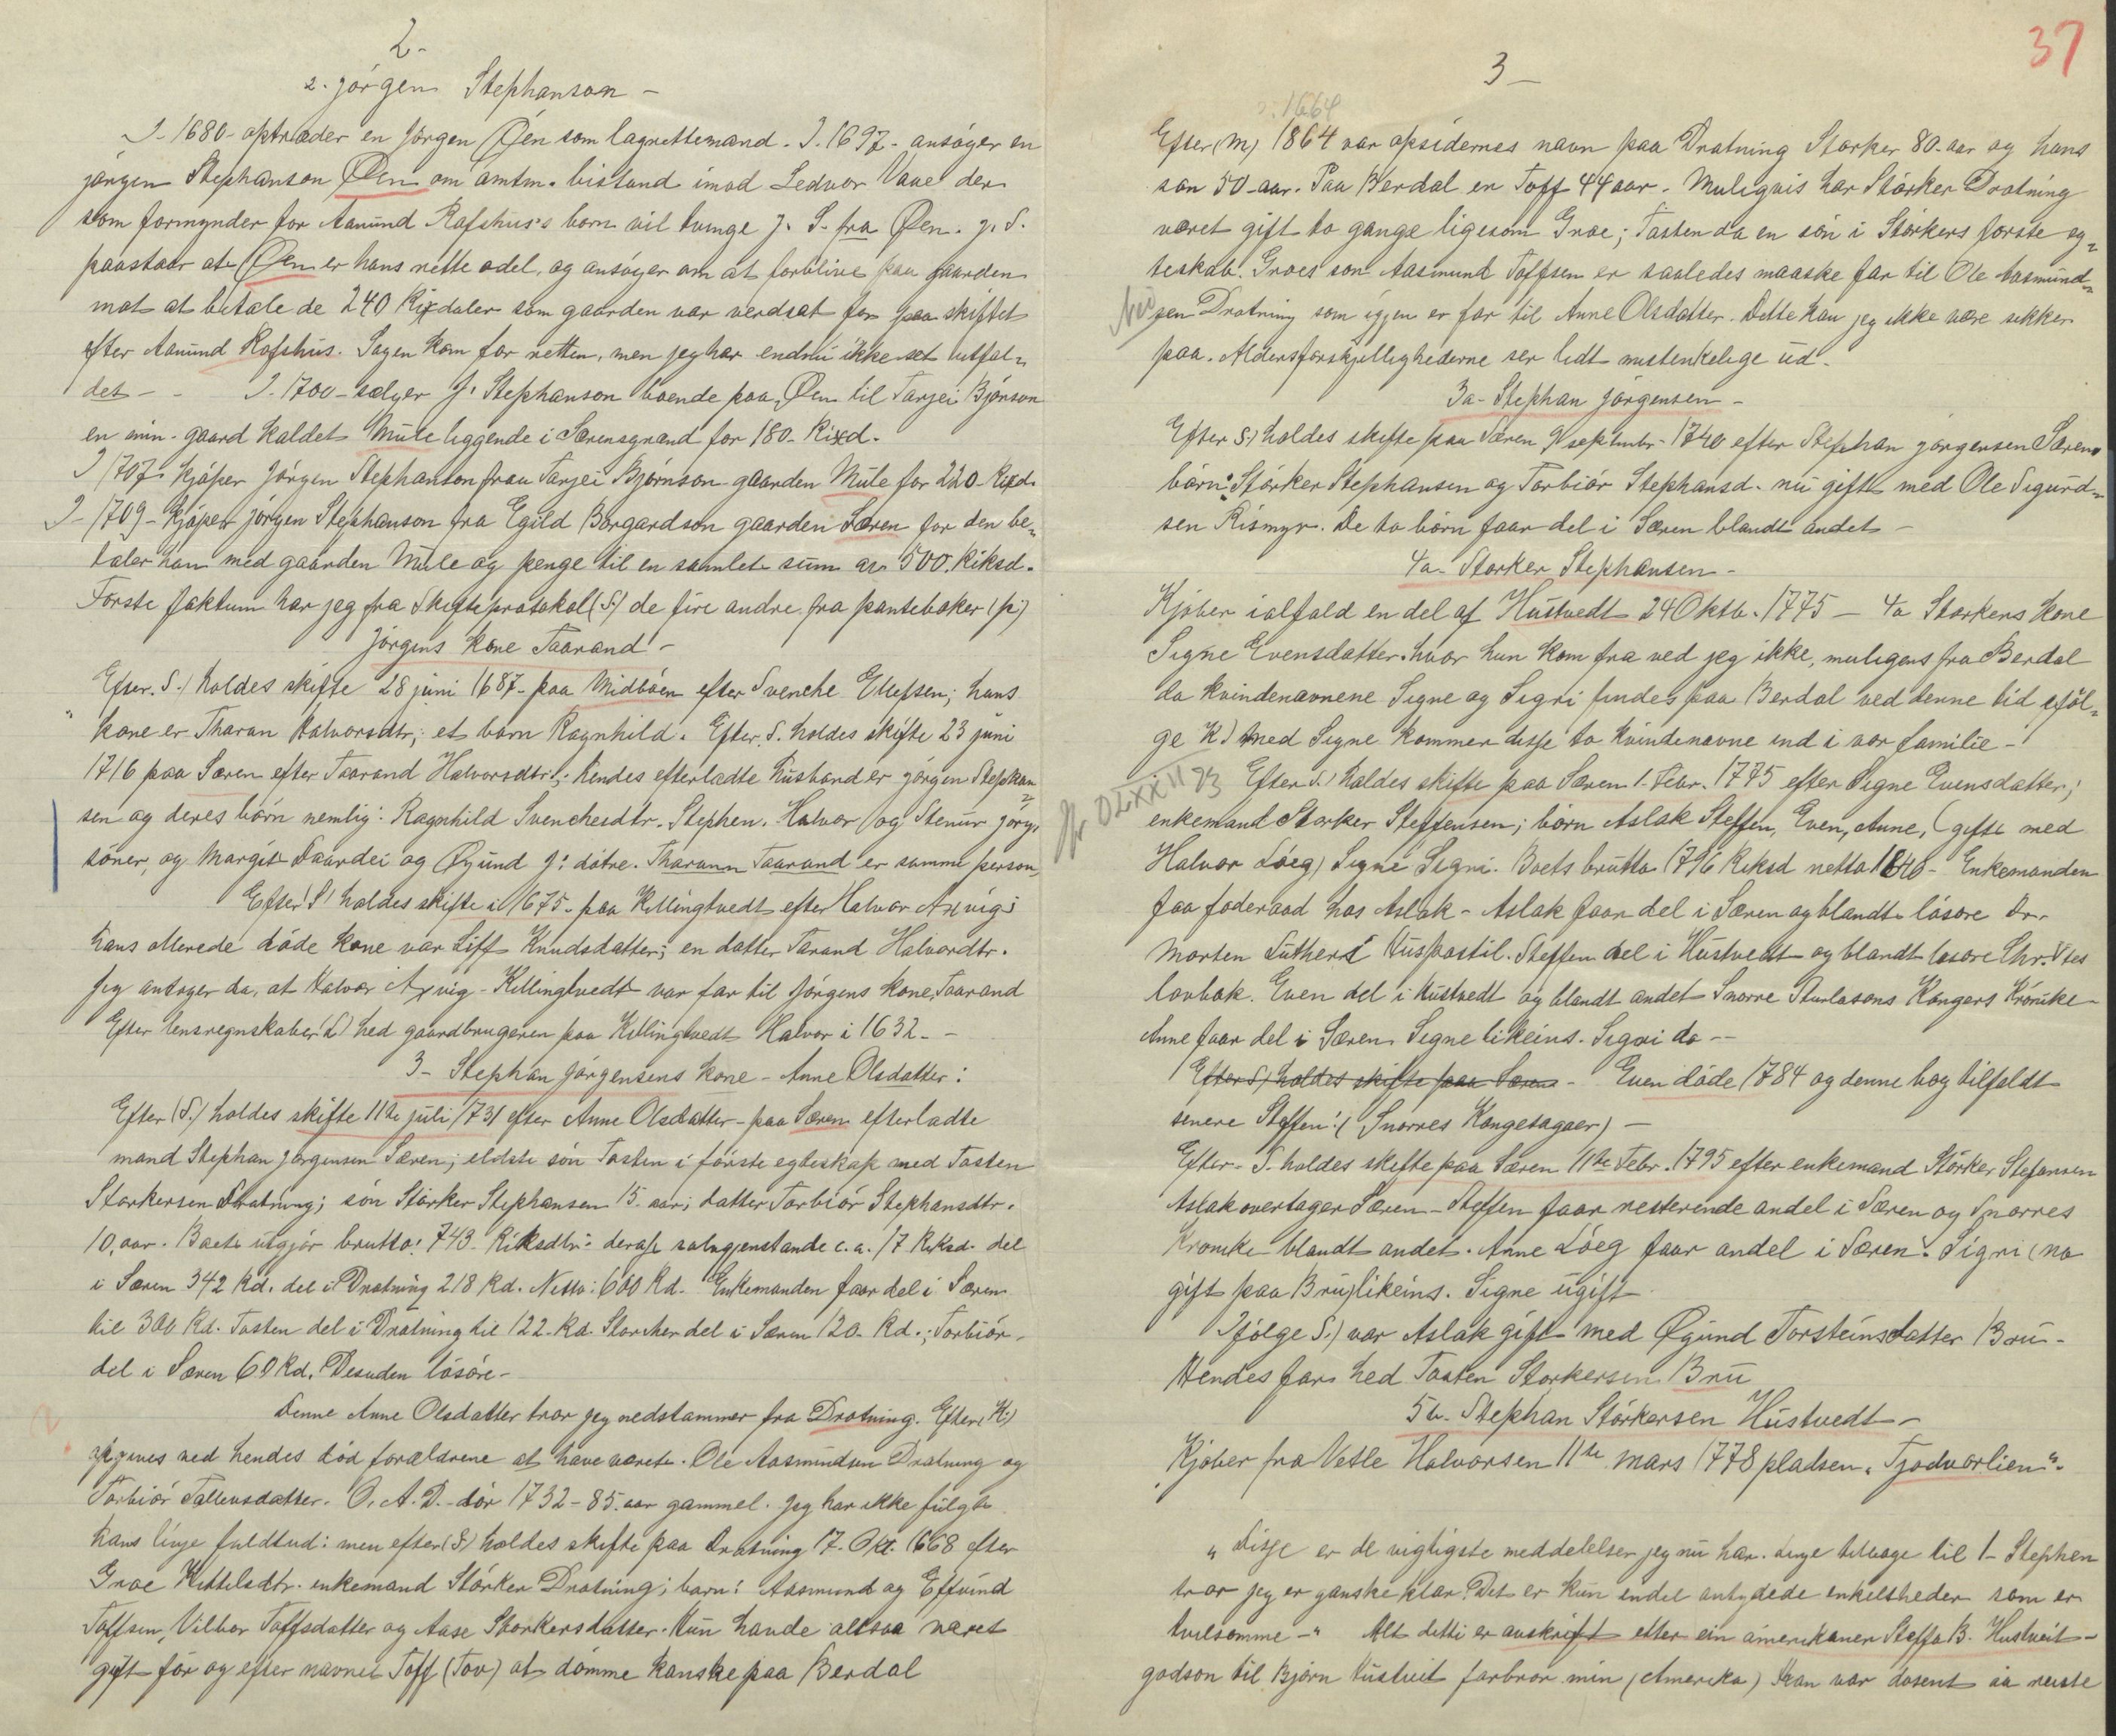 2-
2. Jörgen Stephanson -
I-1680- optræder en Jörgen Öen som lagrettemand. I. 1697- ansöger en
jörgen Stephanson Öen om amtm. bistand imod Ledvor Vaae der
som formynder for Aamund Rafshus's born vil tvinge J. S. fra Øen. J. S.
paastaar at Øen er hans rette odel, og ansöger om at forblive paa gaarden
mot at betale de 240 Rixdaler som gaarden var verdsat for paa skiftet
efter Aamund Rafshus. Sagen kom for retten, men jeg har endnu ikke set utfal-
det - - I-1700-sælger J. Stephanson boende paa Øen til Tarjei Bjönson
en min-gaard kaldet Mule liggende i Særensgrænd for 180. Rixd.
I 1707- kjöper Jörgen Stephanson fraa Tarjei Bjørnson gaarden Mule for 220 Rixd.
I-1709- kjöper jörgen Stephanson fra Egild Borgardson gaarden Særen for den be-
taler han med gaarden Mule og penge til en samlet sum av 500. Riksd.
Förste faktum har jeg fra Skifteprotokol (S.) de fire andre fra pantebøker (p.)
Jörgens kone Taarand -
Efter. S.) holdes skifte 28 juni 1687- paa Midböen efter Svenche Ellefsen; hans
kone er Tharan Halvorsdtr; et barn Ragnhild. Efter. S. holdes skifte 23 juni
1716 paa Særen efter Taarand Halvorsdtr!; hendes efterladte husband er jörgen Stephan-
sen og deres börn nemlig: Ragnhild Svenchesdtr. Stephen. Halvor og Stenur jörg.
söner, og Margit Taardei og Øgund J: dötre. Tharann Taarand er samme person,
Efter S) holdes skifte i 1675- paa Killingtvedt efter Halvor Axvigs
hans allerede döde kone var Liff Knudsdatter; en datter Tarand Halvordtr.
Jeg antager da, at Halvor Axvig-Killingtvedt var far til Jörgens kone Taarand
Efter lensregnskaber (L) hed gaardbrugeren paa Killingtvedt Halvor i 1632. -
3- Stephan Jörgensens kone - Anne Olsdatter:
Efter (S.) holdes skifte 11te juli 1731 efter Anne Olsdatter - paa Særen efterladte
mand Stephan Jörgensen Særen; eldste sön Tosten i förste egteskap med Tosten
Storkersen Dratning; sön Störker Stephansen 15. aar; datter Torbiör Stephansdtr.
10. aar. Boets utgjör brutto: 743. Riksdlr: deraf sølvgjenstande c.a. 17 Riksd. del
i Særen 342 Rd. del i Dratning 218 Rd. Netto: 600 Rd. Enkemanden faar del i Særen
til 300 Rd. Tosten del i Dratning til 122. Rd. Storcher del i Særen 120. Rd.; Torbiör.
del i Særen 60 Rd. Desuden lösöre-
Denne Anne Olsdatter tror jeg nedstammer fra Dratning. Efter (K.)
opgives ved hendes död forældrene at have været. Ole Aasmundsen Dratning og
Torbiör Tallevsdatter. O. A. D. dör 1732-85. aar gammel. Jeg har ikke fulgt
hans linje fuldtud: men efter (S) holdes skifte paa Dratning 17. Okt. 1668 efter
Groe Kittilsdtr. enkemand Störker Dratning; barn: Aasmund og Effvind
Toffsen, Vilbor Toffsdatter og Aase Storkersdatter. Hun havde altsaa været
gift för og efter navnet Toff (Tov) at dömme kanske paa Berdal
37
3 -
1664
Efter (M) 1864 var opsidernes navn paa Dratning Storker 80. aar og hans
søn 50-aar. Paa Berdal en Toff 44 aar. Muligvis har Störker Dratning
været gift to gange ligesom Groe; Tosten da en sön i Störkers förste eg-
teskab. Groes son Aasmund Toffsen er saaledes maaske far til Ole Aasmund-
sen Dratning som igjen er far til Anne Olsdatter. Dette kan jeg ikke være sikker
paa. Aldersforskjellighederne ser lidt mistenkelige ud.
3a- Stephan Jörgensen -
Efter S.) holdes skifte paa Særen 9 septembr- 1740 efter Stephan jörgensen Særen
börn: Störker Stephansen og Torbiör Stephansd. nu gift med Ole Sigurd-
sen Rismyr. De to börn faar del i Særen blandt andet -
4a- Storker Stephansen -
Kjöber ialfald en del af Hustvedt 24 Oktb. 1775 - 4a Storkers kone
Signe Evensdatter. hvor hun kom fra ved jeg ikke, muligens fra Berdal
da kvindenavnene Signe og Sigri findes paa Berdal ved denne tid iföl-
ge K.) Med Signe kommer disse to kvindenavne ind i vor familie -
Efter S.) holdes skifte paa Særen 1. Febr. 1775 efter Signe Evensdatter;
enkemand Storker Steffensen; börn Aslak Steffen, Even, Anne, (gift med
Halvor Löeg) Signe Sigri. Boets brutto 1796 Riksd netto 1840 - Enkemanden
faa foderaad hos Aslak - Aslak faar del i Særen og blandt lösöre Dr.
Morten Luthers Huspostil. Steffen del i Hustvedt og blandt løsøre Chr. 5tes
lovbok. Even del i Hustvedt og blandt andet Snorre Sturlasons Kongers Krönike -
Anne faar del i Særen. Signe likeins. Sigri do --
Efter S.) holdes skifte paa Særen - Even döde 1784 og denne bog tilfaldt
senere Steffen! (Snorres Kongesagaer) -
Efter- S. holdes skifte paa Særen 11te Febr. 1795 efter enkemand Störker Stefansen
Aslak overtager Særen - Steffen faar resterende andel i Særen og Snorres
Krønike blandt andet. Anne Löeg faar andel i Særen. Sigri (no
gift paa Bru) likeins. Signe ugift
Ifølge S.) var Aslak gift med Øgund Torsteinsdatter Bru -
Hendes far hed Tosten Storkersen Bru
5b- Stephan Störkersen Hustvedt -
Kjöber fra Vetle Halvorsen 11te mars 1778 pladsen "Tjodvorlien".
"Disse er de vigtigste meddelelser jeg nu har. Linje tilbage til 1- Stephen
tror jeg er ganske klar. Det er kun endel antydede enkeltheder som er
tvilsomme -" Alt detti er avskrift etter ein amerikaner Steffa B. Hustveit -
godson til Björn Hustveit farbror min (Amerika) Han var dosent aa reiste